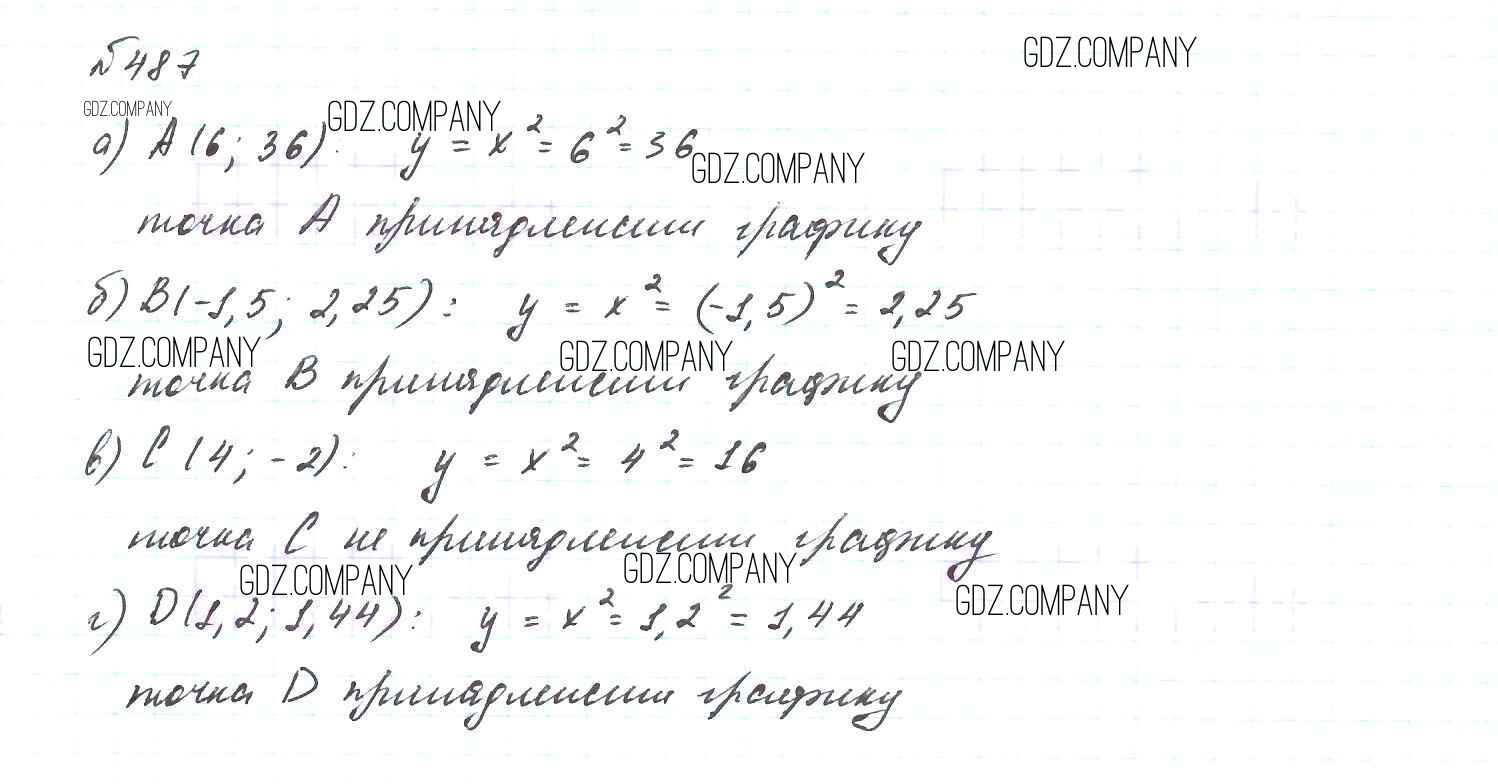 №487
GDZ.COMPANY
GDZ.COMPANY
GDZ.COMPANY
а) A(6; 36): y = x² = 6² = 36
GDZ.COMPANY
точка A принадлежит графику
б) B(-1,5; 2,25): y = x² = (-1,5)² = 2,25
GDZ.COMPANY GDZ.COMPANY GDZ.COMPANY
точка B принадлежит графику
в) C(4; -2): y = x² = 4² = 16
точка C не принадлежит графику
GDZ.COMPANY GDZ.COMPANY GDZ.COMPANY
г) D(1,2; 1,44): y = x² = 1,2² = 1,44
точка D принадлежит графику